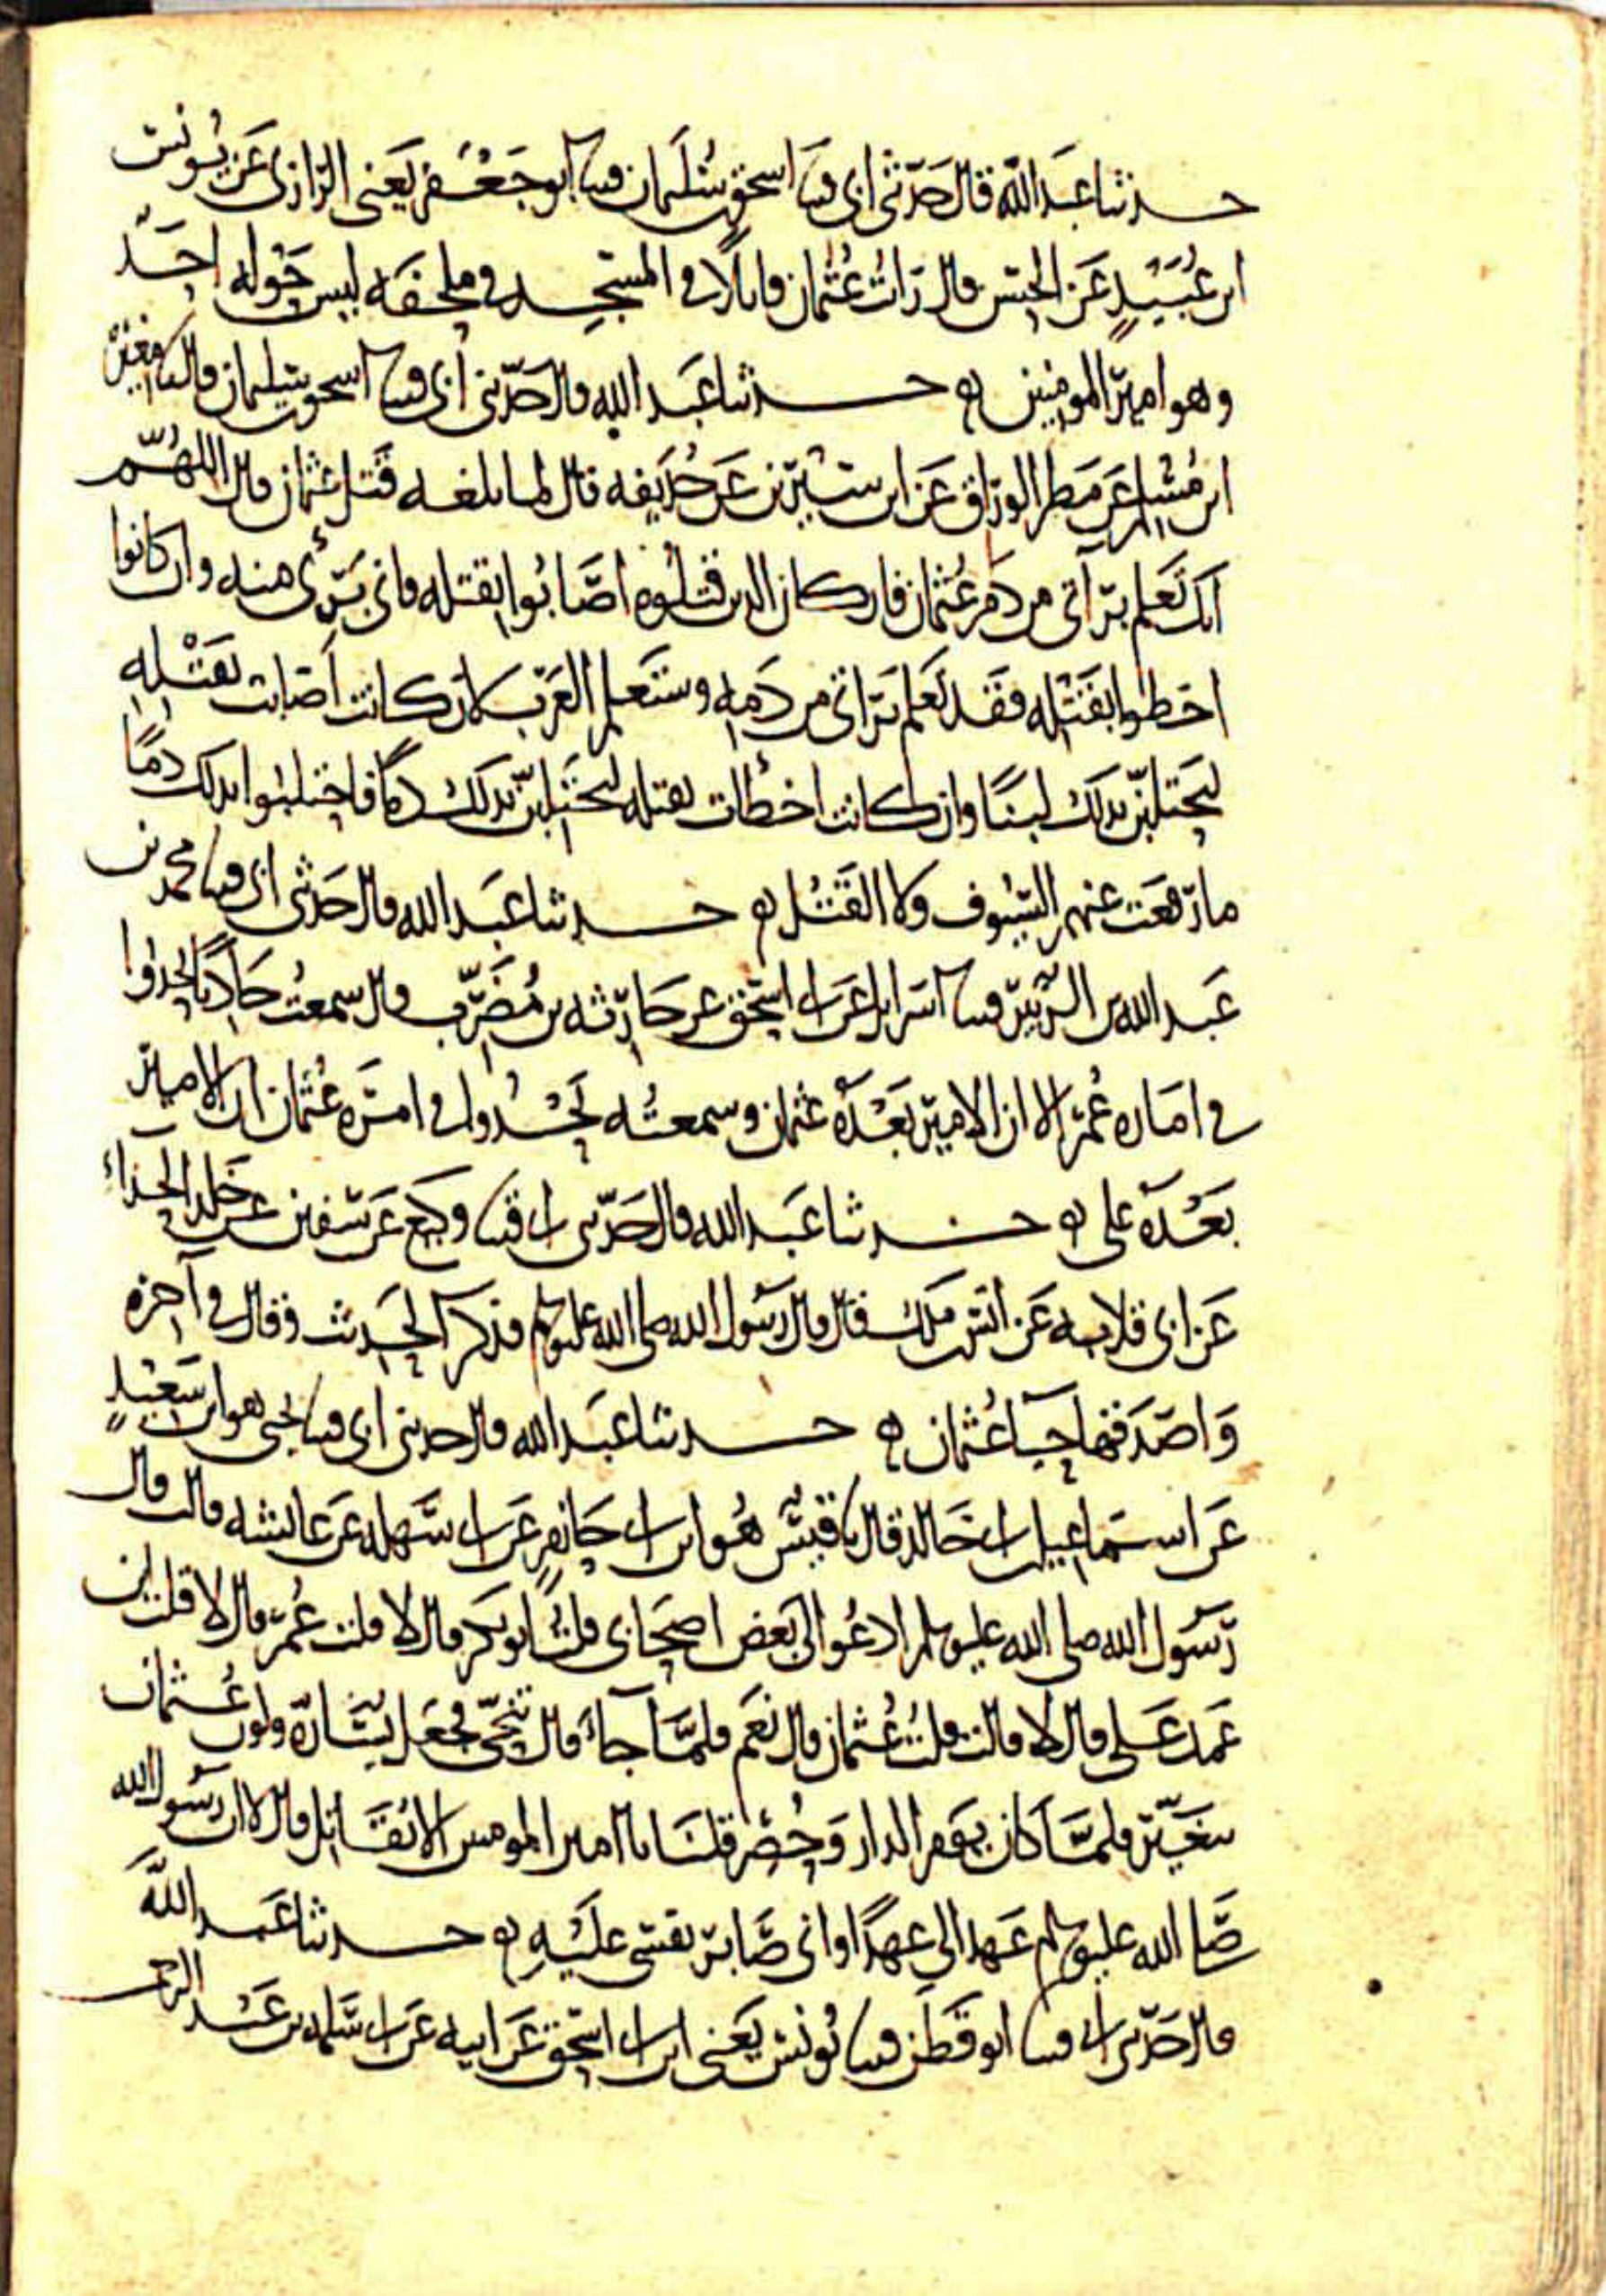 حدثنا عبد الله قال حدثني ابي قثنا اسحق بن سليمان قثنا ابو جعفر يعني الرازي عن يونس
ابن عبيد عن الحسن قال رأيت عثمان قايلا في المسجد في ملحفه ليس حوله احد
وهو امير المومنين حدثنا عبد الله قال حدثني ابي قثنا اسحق بن سليمان قال نا مغيرة
ابن مسلم عن مطر الوراق عن ابن سيرين عن حذيفه قال لما بلغه قتل عثمان قال اللهم
انك تعلم برآتي من دم عثمان فان كان الذين قتلوه اصابوا بقتله فاني برئ منه وان كانوا
اخطوا بقتله فقد تعلم براتي من دمه وستعلم العرب لان كانت اصابت بقتله
ليحتلبن بذلك لبنا وان كانت اخطأت بقتله ليحتلبن بذلك دما فاحتلبوا بذلك دما
ما رفعت عنهم السيوف ولا القتل حدثنا عبد الله قال حدثني ابي قثنا محمد بن
عبد الله بن الزبير قثنا اسرايل عن ابي اسحق عن حارثه بن مضرب قال سمعت حاديا يحدوا
في اماره عمر الا ان الامير بعده عثمان وسمعته يحدوا في امره عثمان ان الامير
بعده علي حدثنا عبد الله قال حدثني ابي قثنا وكيع عن سفين عن خلد الحذاء
عن ابي قلابه عن انس بن ملك قال قال رسول الله صلى الله عليه وسلم فذكر الحديث وقال في آخره
واصدقها حيا عثمان حدثنا عبد الله قال حدثني ابي قثنا يحيى هو ابن سعيد
عن اسماعيل بن ابي خالد قال نا قيس هو ابن ابي حازم عن ابي سهله عن عايشه قالت قال
رسول الله صلى الله عليه وسلم ادعوا لي بعض اصحابي قلت ابو بكر قال لا قلت عمر قال لا قلت ابن
عمك علي قال لا قالت قلت عثمان قال نعم فلما جاء قال تنحي فجعل يساره ولون عثمان
يتغير فلما كان يوم الدار وحصر قلنا يا امير المومنين الا تقاتل قال لا ان رسول الله
صلى الله عليه وسلم عهد الي عهدا واني صابر نفسي عليه حدثنا عبد الله
قال حدثني ابي قثنا ابو قطن قثنا يونس يعني ابن ابي اسحق عن ابيه عن ابي سلمه بن عبد الرحمن